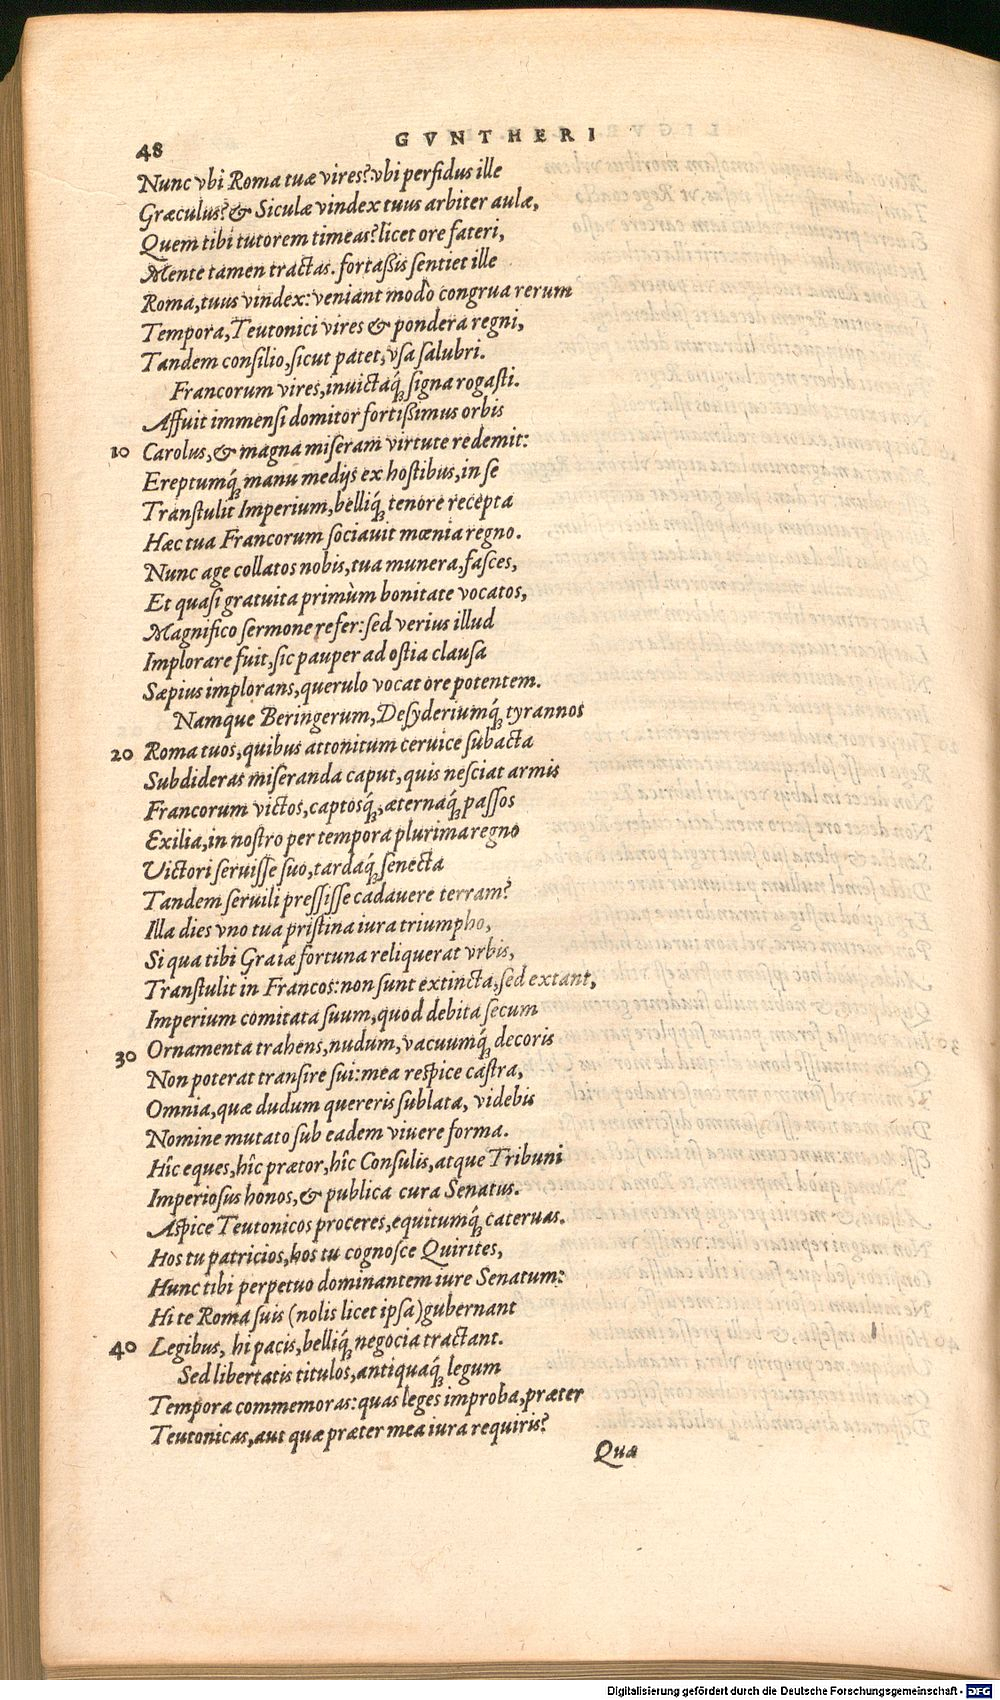 48 GVNTHERI
Nunc vbi Roma tuæ vires? vbi perfidus ille
Græculus? & Siculæ vindex tuus arbiter aulæ,
Quem tibi tutorem timeas? licet ore fateri,
Mente tamen tractas. fortaßis sentiet ille
Roma, tuus vindex: veniant modò congrua rerum
Tempora, Teutonici vires & pondera regni,
Tandem consilio, sicut patet, vsa salubri.
Francorum vires, inuictaq́; signa rogasti.
Affuit immensi domitor fortißimus orbis
10 Carolus, & magna miseram virtute redemit:
Ereptumq́; manu medijs ex hostibus, in se
Transtulit Imperium, belliq́; tenore recepta
Hæc tua Francorum sociauit mœnia regno.
Nunc age collatos nobis, tua munera, fasces,
Et quasi gratuita primùm bonitate vocatos,
Magnifico sermone refer: sed verius illud
Implorare fuit, sic pauper ad ostia clausa
Sæpius implorans, querulo vocat ore potentem.
Namque Beringerum, Desyderiumq́; tyrannos
20 Roma tuos, quibus attonitum ceruice subacta
Subdideras miseranda caput, quis nesciat armis
Francorum victos, captosq́;, æternaq́; passos
Exilia, in nostro per tempora plurima regno
Victori seruisse suo, tardaq́; senecta
Tandem seruili pressisse cadauere terram?
Illa dies vno tua pristina iura triumpho,
Si qua tibi Graiæ fortuna reliquerat vrbis,
Transtulit in Francos: non sunt extincta, sed extant,
Imperium comitata suum, quod debita secum
30 Ornamenta trahens, nudum, vacuumq́; decoris
Non poterat transire sui: mea respice castra,
Omnia, quæ dudum quereris sublata, videbis
Nomine mutato sub eadem viuere forma.
Hîc eques, hîc prætor, hîc Consulis, atque Tribuni
Imperiosus honos, & publica cura Senatus.
Aspice Teutonicos proceres, equitumq́; cateruas.
Hos tu patricios, hos tu cognosce Quirites,
Hunc tibi perpetuo dominantem iure Senatum:
Hi te Roma suis (nolis licet ipsa) gubernant
40 Legibus, hi pacis, belliq́; negocia tractant.
Sed libertatis titulos, antiquaq́; legum
Tempora commemoras: quas leges improba, præter
Teutonicas, aut quæ præter mea iura requiris?
Quæ
Digitalisierung gefördert durch die Deutsche Forschungsgemeinschaft - DFG